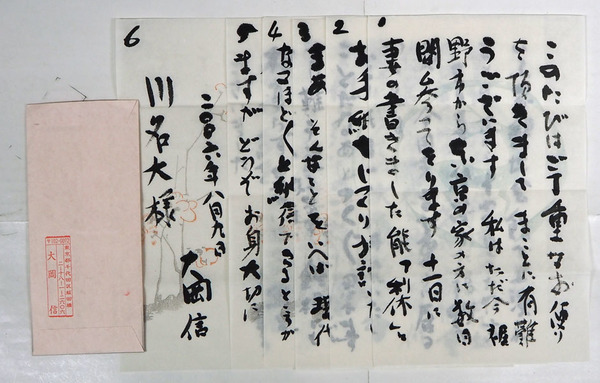 このたびはご丁重なお便り
を頂きまして まことに有難
うございます 私はただ今裾
野市から東京の家の方に数日
間参つてをります 十一日に
妻の書きました能「利休」
1
2
お手紙じつくりお
3
まあ そんなことをいへば 現代
4
なるほどくと納得できるところが
5
ますが どうぞ お身大切に
二〇〇六年八月九日
大岡信
川名大様
6
大岡信